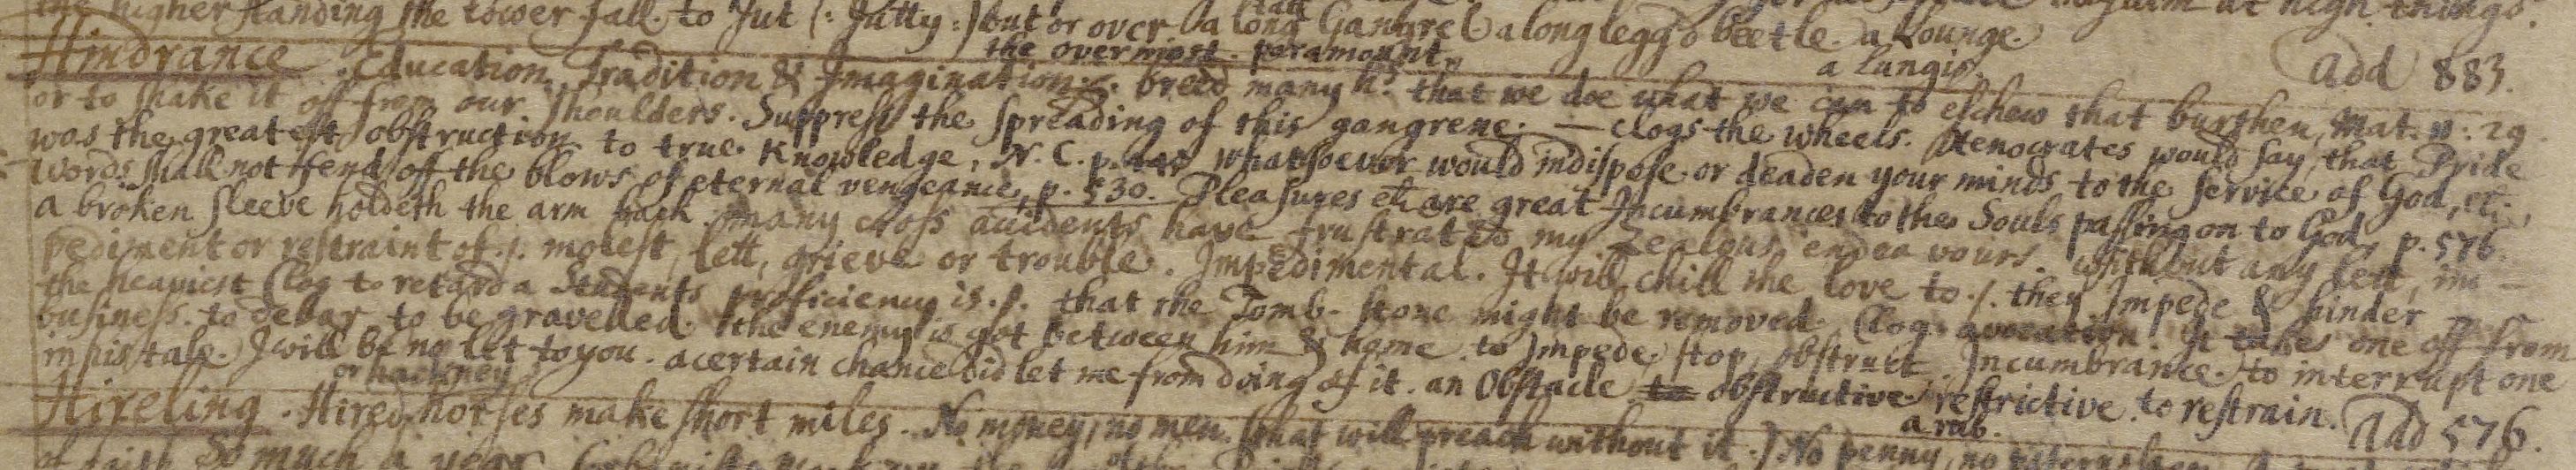 the higher standing the lower fall. to Jut (: Jutty :) out or over. a long Gangrel a long legg'd beetle. a Lounge.
tall
the overmost. paramount. a Lungis.
Hindrance. Education, Tradition & Imagination breed many hs. that we doe what we can to eschew that burthen, Mat. n: 29. add 883.
or to shake it off from our shoulders. Suppress the spreading of this gangrene. — clogs the wheels. Xenocrates would say, that Pride
was the greatest obstruction to true Knowledge, N. C. p. whatsoever would indispose or deaden your minds to the service of God, etc.
Words shall not fend off the blows of eternal vengeance, p. 530. Pleasures etc are great Incumbrances to the Souls passing on to God, p. 576.
a broken sleeve holdeth the arm back. many cross accidents have frustrated my zealous endeavours. without any lett, im-
pediment or restraint of ./. molest, lett, grieve or trouble. Impedimental. It will chill the love to ./. they Impede & hinder
the heaviest Clog to retard a Students proficiency is ./. that the Tomb-stone might be removed. Clog. avocation. It takes one off from
business. to debar. to be gravelled. the enemy is got between him & home. to Impede, stop, obstruct. Incumbrance. to interrupt one
in his tale. I will be no let to you. a certain chance did let me from doing of it. an Obstacle obstructive. restrictive. to restrain. add 576.
or hackney a rub.
Hireling. Hired horses make short miles. No money, no men. (that will preach without it.) No penny, no
So much a year